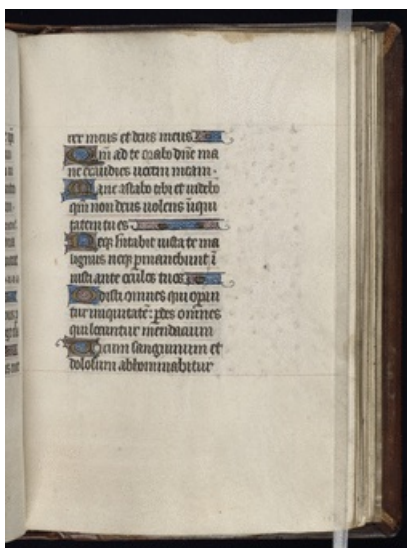 rex meus et deus meus
Qm̄ ad te orabo dn̄e ma
ne exaudies uocem meam.
Mane astabo tibi et uidebo
qm̄ non deus uolens īiqui
tatem tu es
Neqȝ habitabit iuxta te ma
lignus neqȝ ꝑmanebunt ī
iusti ante oculos tuos
Odisti omnes qui oꝑan
tur iniquitatē: ꝑdes om̄es
qui locuntur mendacium
Uirum sanguinum et
dolosum abhominabitur